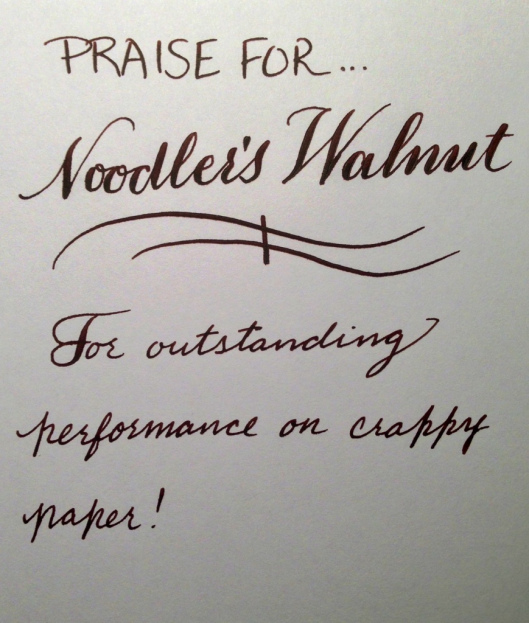 PRAISE FOR...
Noodler's Walnut
For outstanding
performance on crappy
paper!